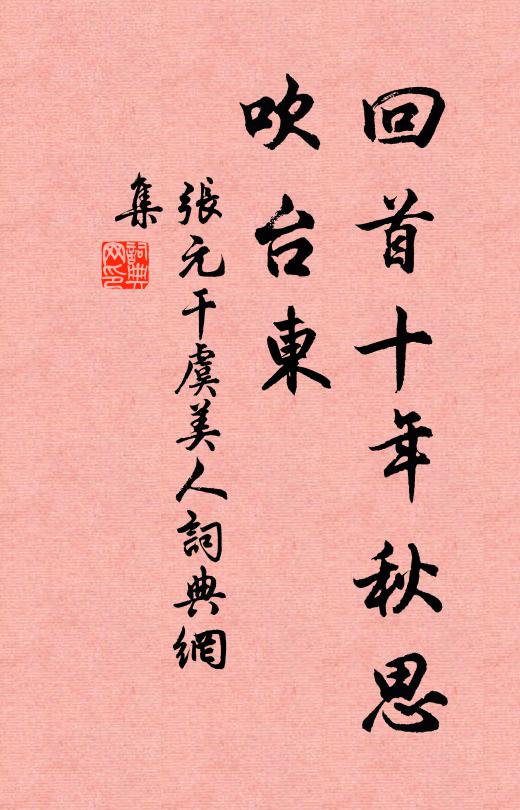 回首十年秋思
吹台東
張元干虞美人詞典網
集
詞典网印